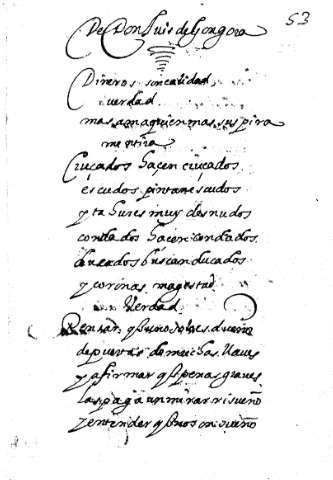 53
De Don Luis de Gongora
Dineros son calidad
verdad
mas ama quien mas suspira
mentira
Cruçados hacen cruçados
escudos pintan escudos
y tahures muy desnudos
con dados hacen condados
ducados buscan ducados
y coronas magestad
Verdad
Pensar q uno solo es dueño
de puertas de muchas llaues
y afirmar q penas graues
las paga un mirar risueño
y entender q